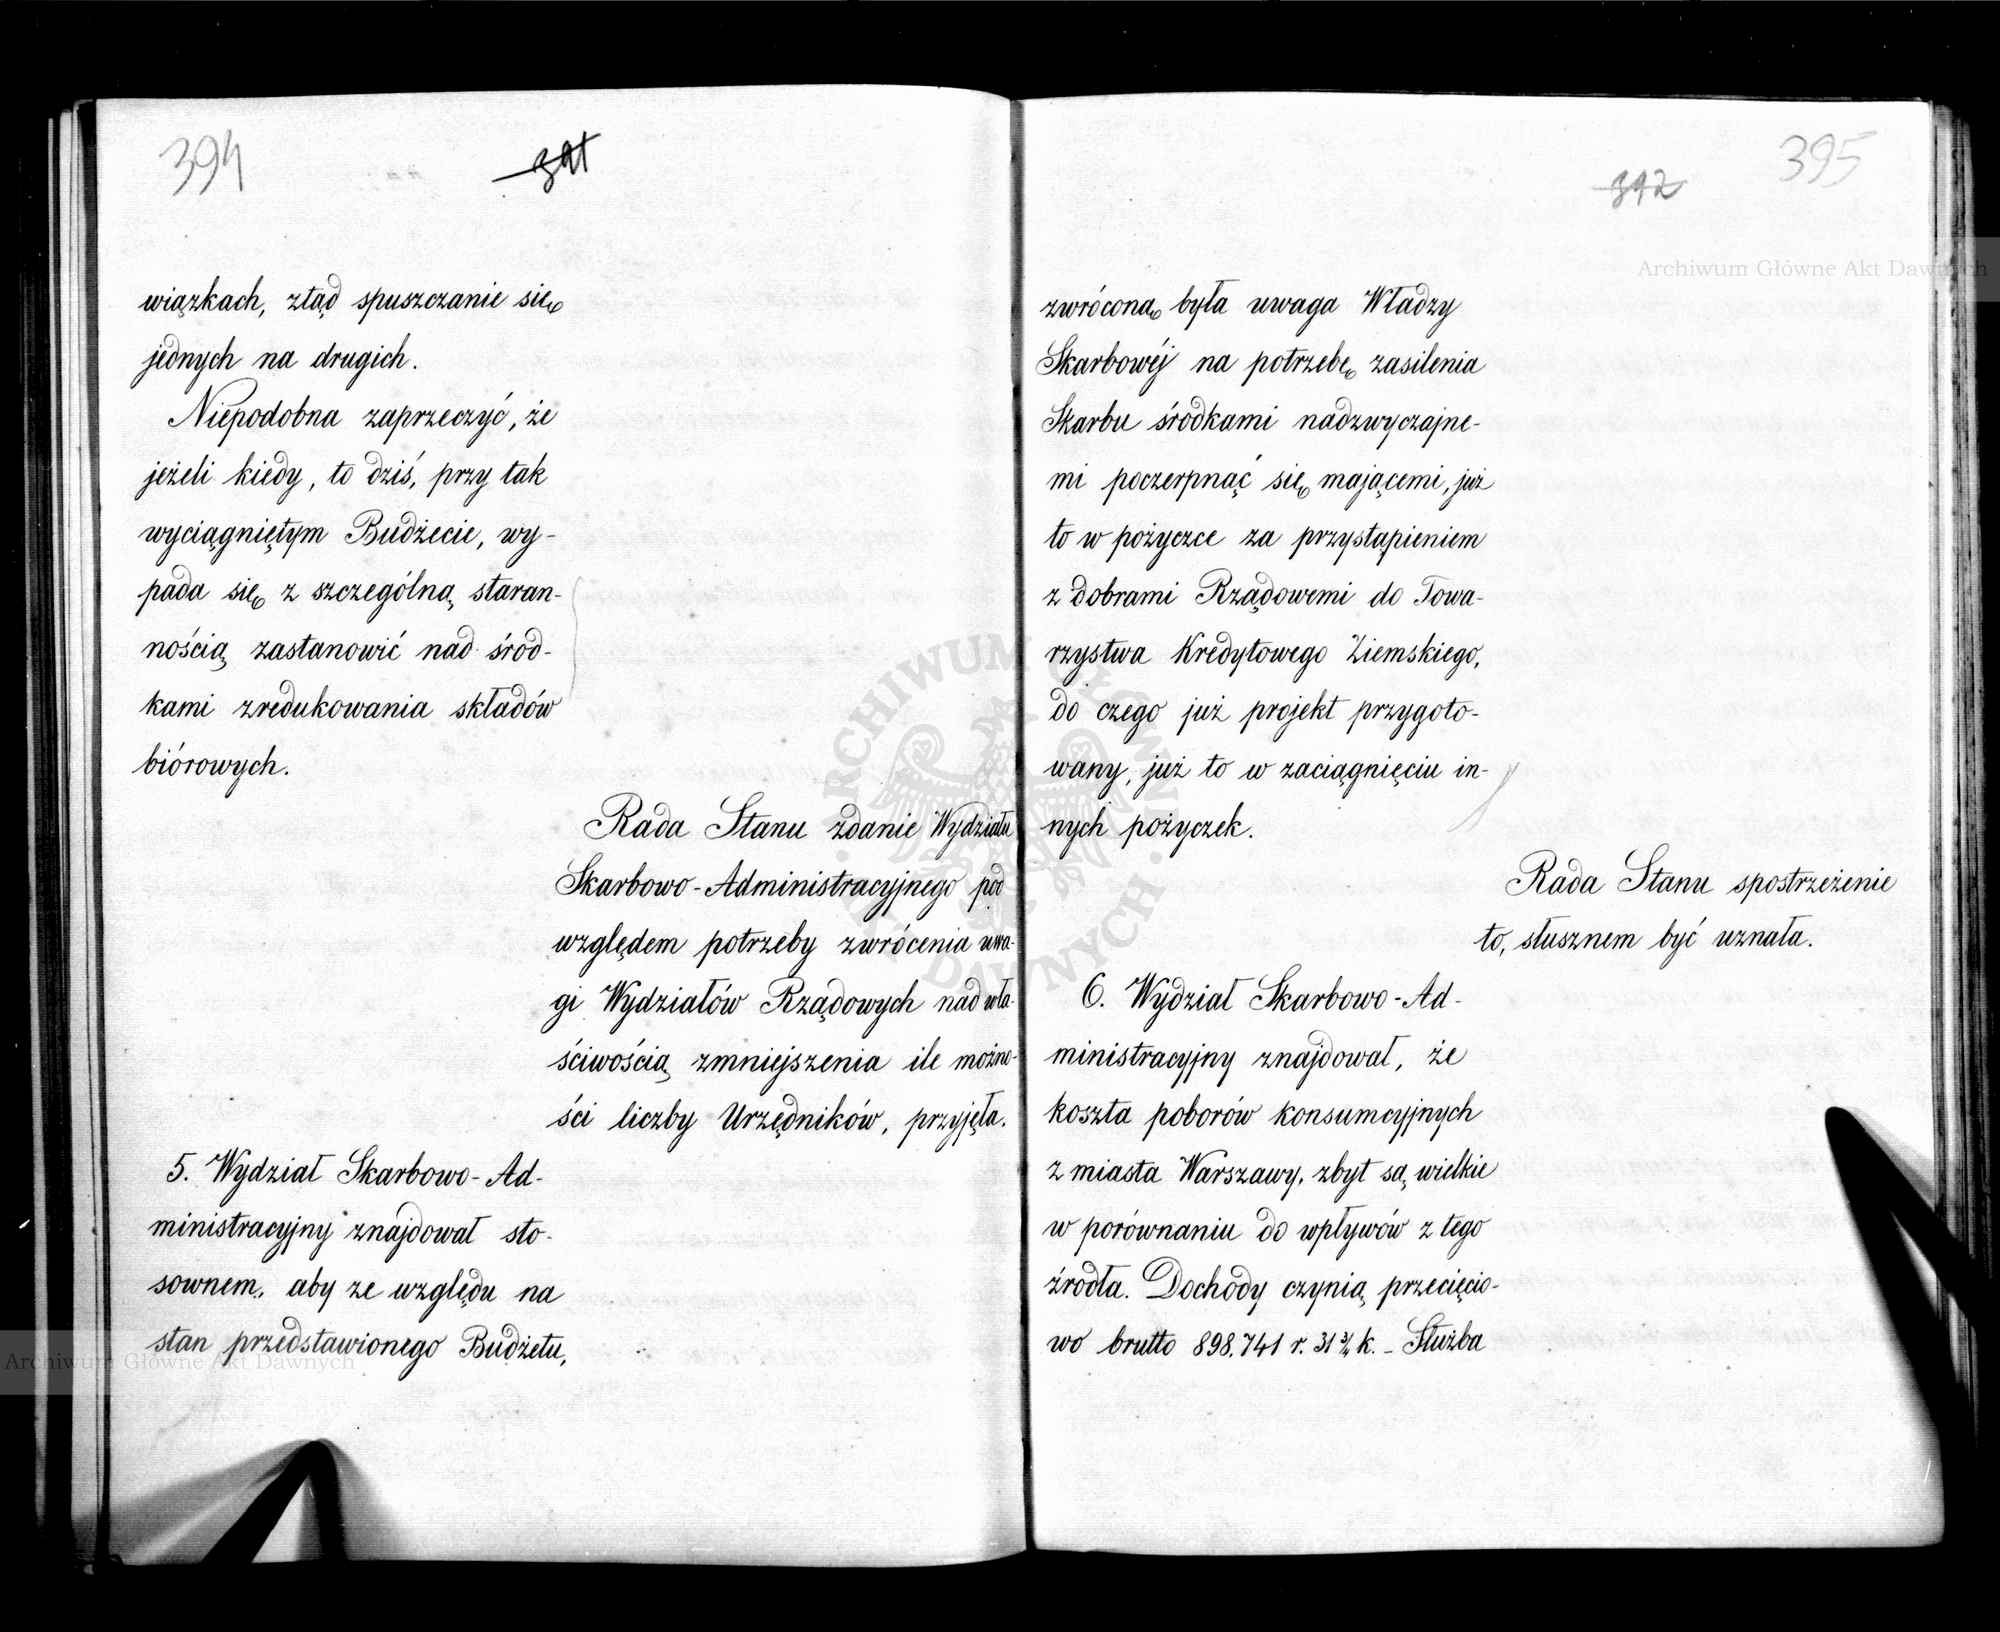 394
391
wiązkach, ztąd spuszczanie się
jednych na drugich.
Niepodobna zaprzeczyć, że
jeżeli kiedy, to dziś, przy tak
wyciągniętym Budżecie, wy-
pada się z szczególną staran-
nością zastanowić nad środ-
kami zredukowania składów
biórowych.
Rada Stanu zdanie Wydziału
Skarbowo-Administracyjnego pod
względem potrzeby zwrócenia uwa-
gi Wydziałów Rządowych nad wła-
ściwością zmniejszenia ile możno-
ści liczby Urzędników, przyjęła.
5. Wydział Skarbowo-Ad-
ministracyjny znajdował sto-
sownem, aby ze względu na
stan przedstawionego Budżetu,
395
392
zwróconą była uwaga Władzy
Skarbowéj na potrzebę zasilenia
Skarbu środkami nadzwyczajne-
mi poczerpnąć się mającemi, już
to w pożyczce za przystąpieniem
z dobrami Rządowemi do Towa-
rzystwa Kredytowego Ziemskiego,
do czego już projekt przygoto-
wany, już to w zaciągnięciu in-
nych pożyczek.
Rada Stanu spostrzeżenie
to, słusznem być uznała.
6. Wydział Skarbowo-Ad-
ministracyjny znajdował, że
koszta poborów konsumcyjnych
z miasta Warszawy, zbyt są wielkie
w porównaniu do wpływów z tego
źródła. Dochody czynią przecięcio-
wo brutto 898.741 r. 31 3/4 k. - Służba
Archiwum Główne Akt Dawnych
Archiwum Główne Akt Dawnych
ARCHIWUM GŁÓWNE AKT DAWNYCH